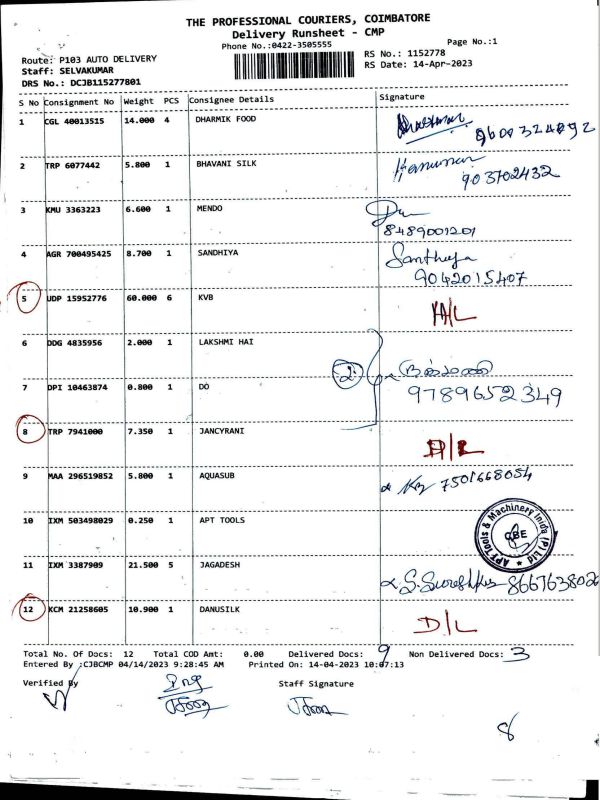 THE PROFESSIONAL COURIERS, COIMBATORE
Delivery Runsheet - CMP
Phone No.:0422-3505555
Page No.:1
Route: P103 AUTO DELIVERY
RS No.: 1152778
Staff: SELVAKUMAR
RS Date: 14-Apr-2023
DRS No.: DCJB115277801
S No Consignment No Weight PCS Consignee Details Signature
1 CGL 40013515 14.000 4 DHARMIK FOOD
2 TRP 6077442 5.800 1 BHAVANI SILK
903702432
3 KMU 3363223 6.600 1 MENDO
8489001201
4 AGR 700495425 8.700 1 SANDHIYA Santhiya
9042015407
5 UDP 15952776 60.000 6 KVB
6 DDG 4835956 2.000 1 LAKSHMI HAI
2
7 DPI 10463874 0.800 1 DO 9789652349
8 TRP 7941000 7.350 1 JANCYRANI D/L
9 MAA 296519852 5.800 1 AQUASUB 7501668054
10 IXM 503498029 0.250 1 APT TOOLS
APT Tools & Machinery India (P) Ltd
CBE
11 IXM 3387909 21.500 5 JAGADESH 8667638026
12 KCM 21258605 10.900 1 DANUSILK D/L
Total No. Of Docs: 12 Total COD Amt: 0.00 Delivered Docs: 9 Non Delivered Docs: 3
Entered By :CJBCMP 04/14/2023 9:28:45 AM Printed On: 14-04-2023 10:07:13
Verified By Staff Signature
8